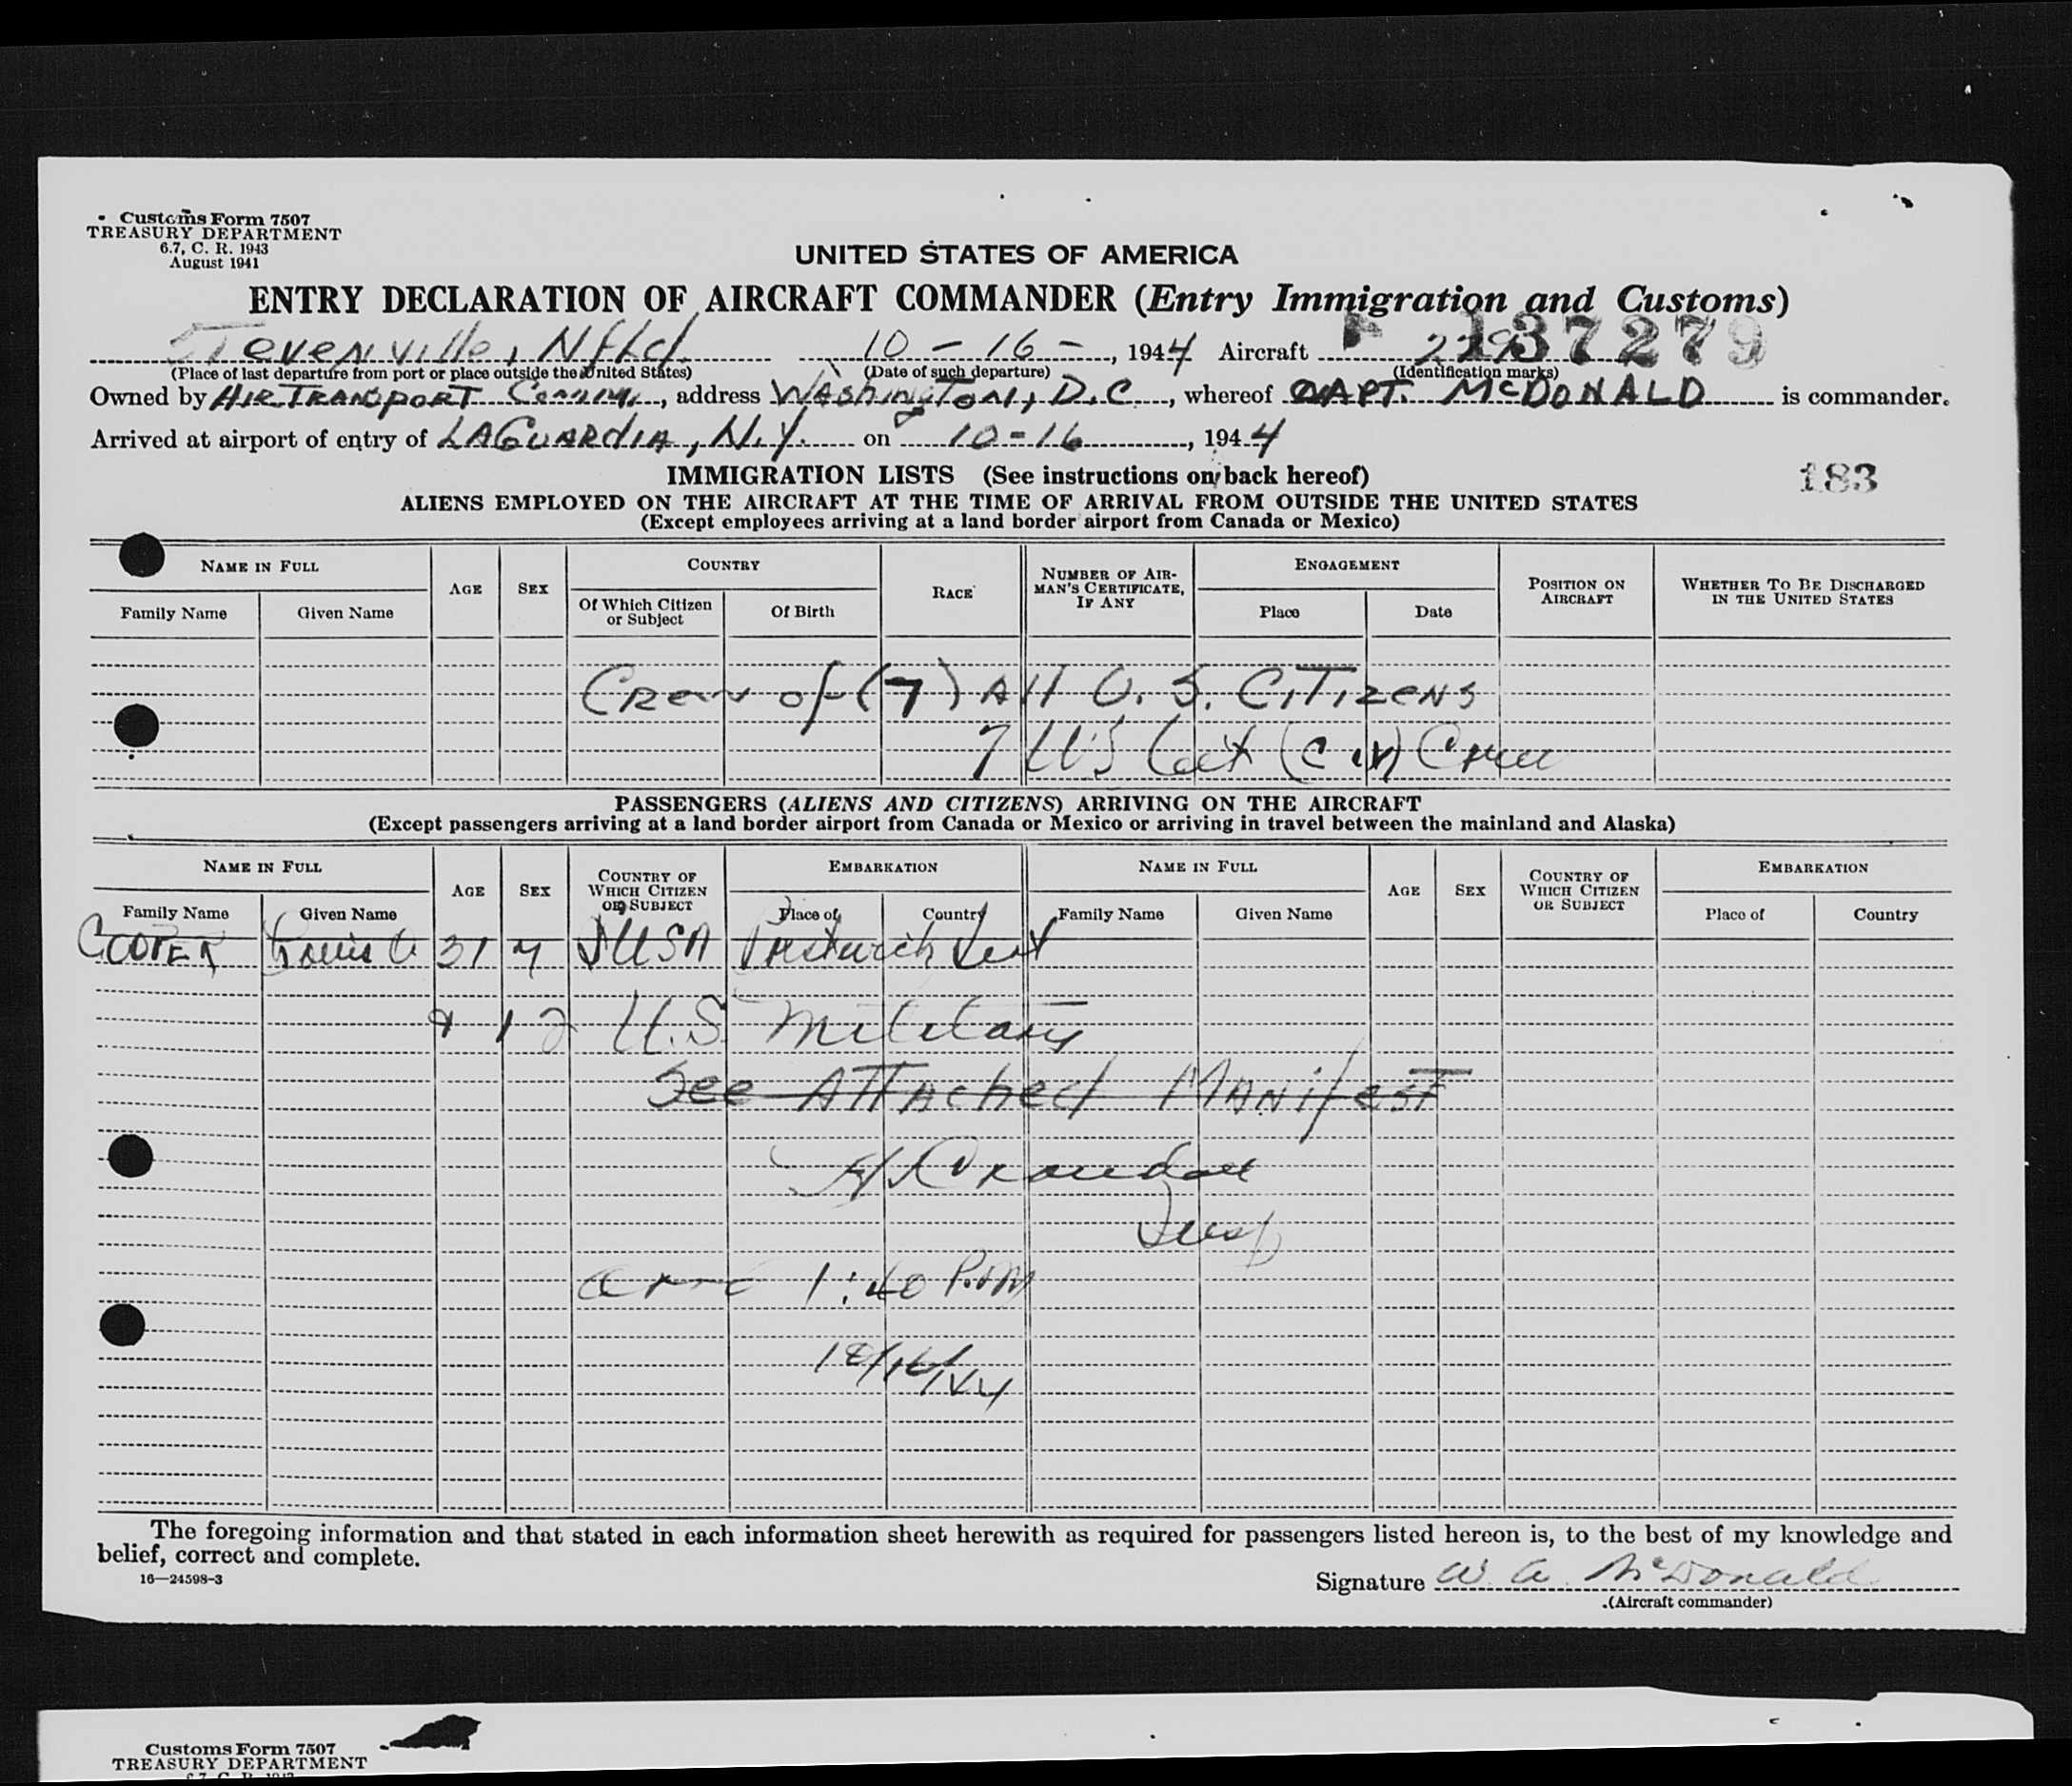 Customs Form 7507
TREASURY DEPARTMENT
6.7, C. R. 1943
August 1941
UNITED STATES OF AMERICA
ENTRY DECLARATION OF AIRCRAFT COMMANDER (Entry Immigration and Customs)
137279
Stevenville, Nfld. 10-16-, 1944 Aircraft
(Place of last departure from port or place outside the United States) (Date of such departure) (Identification marks)
Owned by Air Transport Comm., address Washington, D.C., whereof CAPT. McDONALD is commander.
Arrived at airport of entry of LAGUARDIA, N.Y. on 10-16, 1944
IMMIGRATION LISTS (See instructions on back hereof)
183
ALIENS EMPLOYED ON THE AIRCRAFT AT THE TIME OF ARRIVAL FROM OUTSIDE THE UNITED STATES
(Except employees arriving at a land border airport from Canada or Mexico)
NAME IN FULL AGE SEX COUNTRY RACE NUMBER OF AIRMAN'S CERTIFICATE, IF ANY ENGAGEMENT POSITION ON AIRCRAFT WHETHER TO BE DISCHARGED IN THE UNITED STATES
Family Name Given Name Of Which Citizen or Subject Of Birth Place Date
Crew of (7) All U.S. Citizens
7 US Cit (Civ) Crew
PASSENGERS (ALIENS AND CITIZENS) ARRIVING ON THE AIRCRAFT
(Except passengers arriving at a land border airport from Canada or Mexico or arriving in travel between the mainland and Alaska)
NAME IN FULL AGE SEX COUNTRY OF WHICH CITIZEN OR SUBJECT EMBARKATION NAME IN FULL AGE SEX COUNTRY OF WHICH CITIZEN OR SUBJECT EMBARKATION
Family Name Given Name Place of Country Family Name Given Name Place of Country
COOPER Louis 31 M USA Prestwich
12 U.S. Military
See Attached Manifest
Crandall
Insp
arrd 1:40 P.M
10/16/44
The foregoing information and that stated in each information sheet herewith as required for passengers listed hereon is, to the best of my knowledge and
belief, correct and complete.
16—24598-3
Signature W. A. McDonald
(Aircraft commander)
Customs Form 7507
TREASURY DEPARTMENT